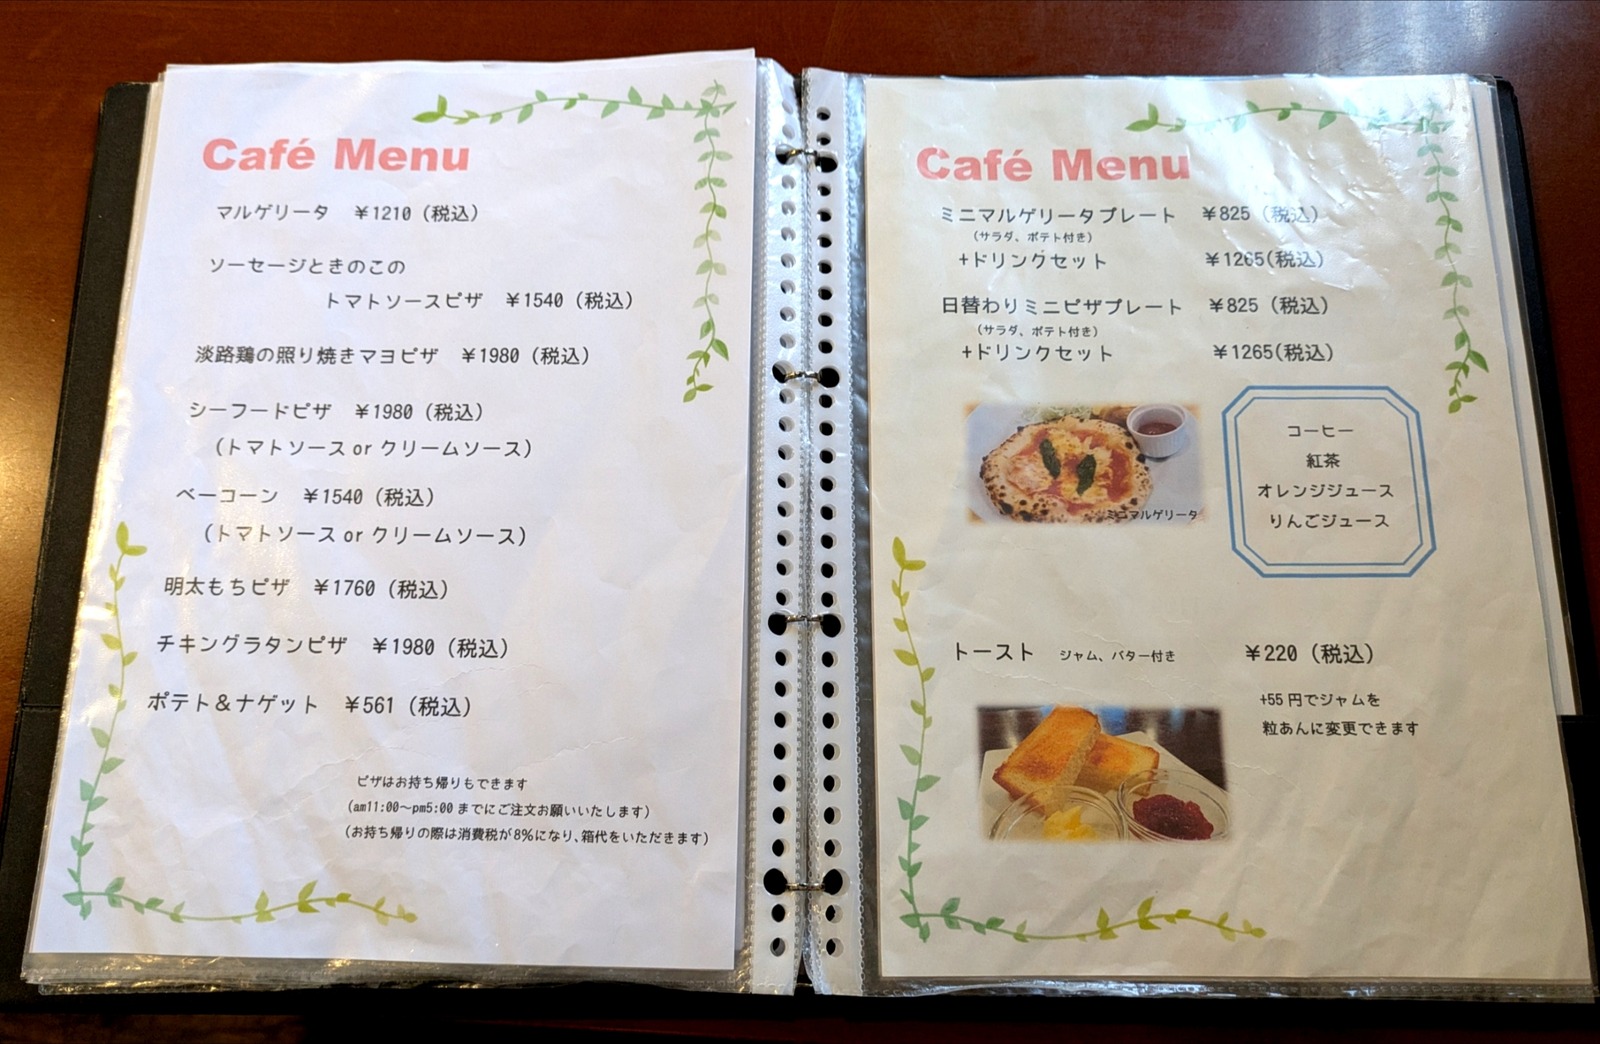 Café Menu
マルゲリータ ￥1210（税込）
ソーセージときのこの
トマトソースピザ ￥1540（税込）
淡路鶏の照り焼きマヨピザ ￥1980（税込）
シーフードピザ ￥1980（税込）
（トマトソース or クリームソース）
ベーコーン ￥1540（税込）
（トマトソース or クリームソース）
明太もちピザ ￥1760（税込）
チキングラタンピザ ￥1980（税込）
ポテト＆ナゲット ￥561（税込）
ピザはお持ち帰りもできます
（am11:00～pm5:00 までにご注文お願いいたします）
（お持ち帰りの際は消費税が8％になり、箱代をいただきます）
Café Menu
ミニマルゲリータプレート ￥825（税込）
（サラダ、ポテト付き）
+ドリンクセット ￥1265(税込)
日替わりミニピザプレート ￥825（税込）
（サラダ、ポテト付き）
+ドリンクセット ￥1265(税込)
ミニマルゲリータ
コーヒー
紅茶
オレンジジュース
りんごジュース
トースト ジャム、バター付き ￥220（税込）
+55 円でジャムを
粒あんに変更できます